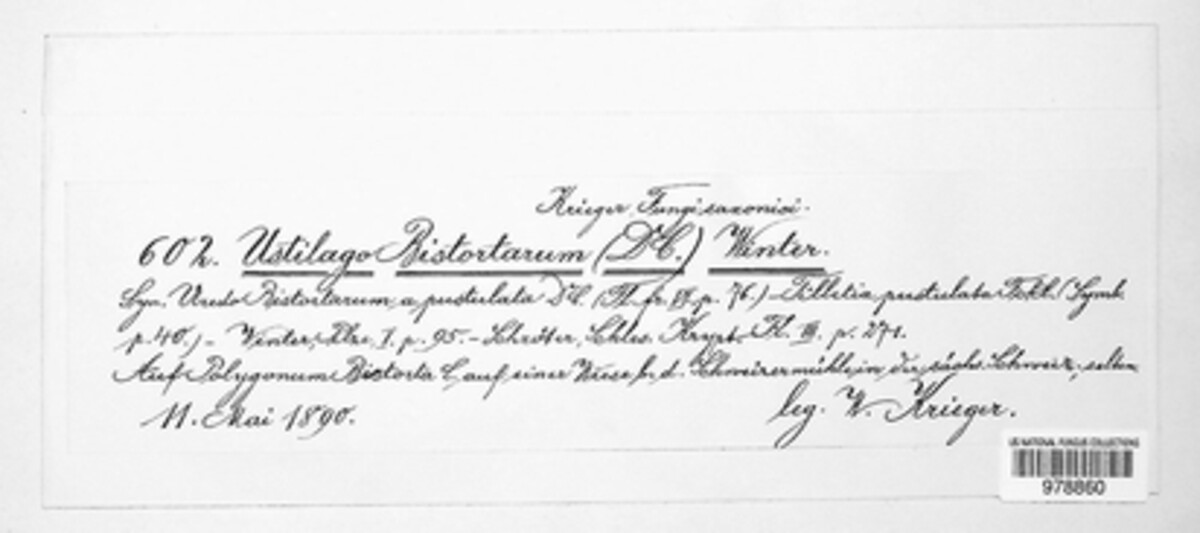 Krieger, Fungi saxonici.
602. Ustilago Bistortarum (DC.) Winter.
Syn. Uredo Bistortarum α pustulata DC. (Fl. fr. p. 76.) – Tilletia pustulata Fckl. (Symb.
p. 40.) – Winter, Pilze, I. p. 95. – Schröter, Schles. Krypt. Fl. III. p. 271.
Auf Polygonum Bistorta L. auf einer Wiese b. d. Schweizermühle in der sächs. Schweiz, selten
11. Mai 1890.
leg. W. Krieger.
US NATIONAL FUNGUS COLLECTIONS
978860